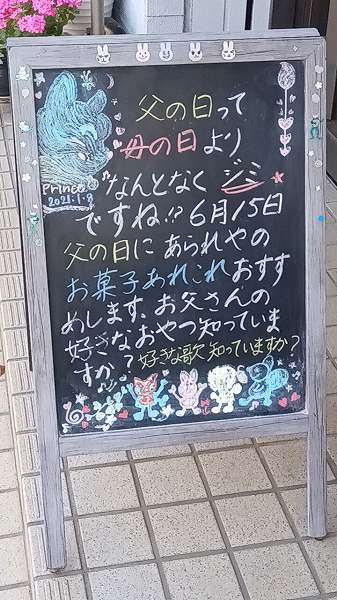 父の日って
母の日より
なんとなくジミ
ですね!?6月15日
父の日にあられやの
お菓子あれこれおすす
めします、お父さんの
好きなおやつ知っていま
すか?好きな歌知っていますか?
Prince
2021.1.8